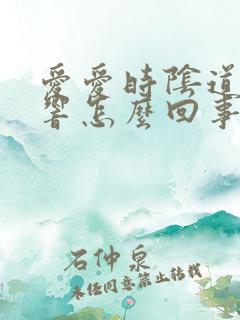 愛愛時陰道
響怎麼回事
石仲泉
未经同意禁止转载